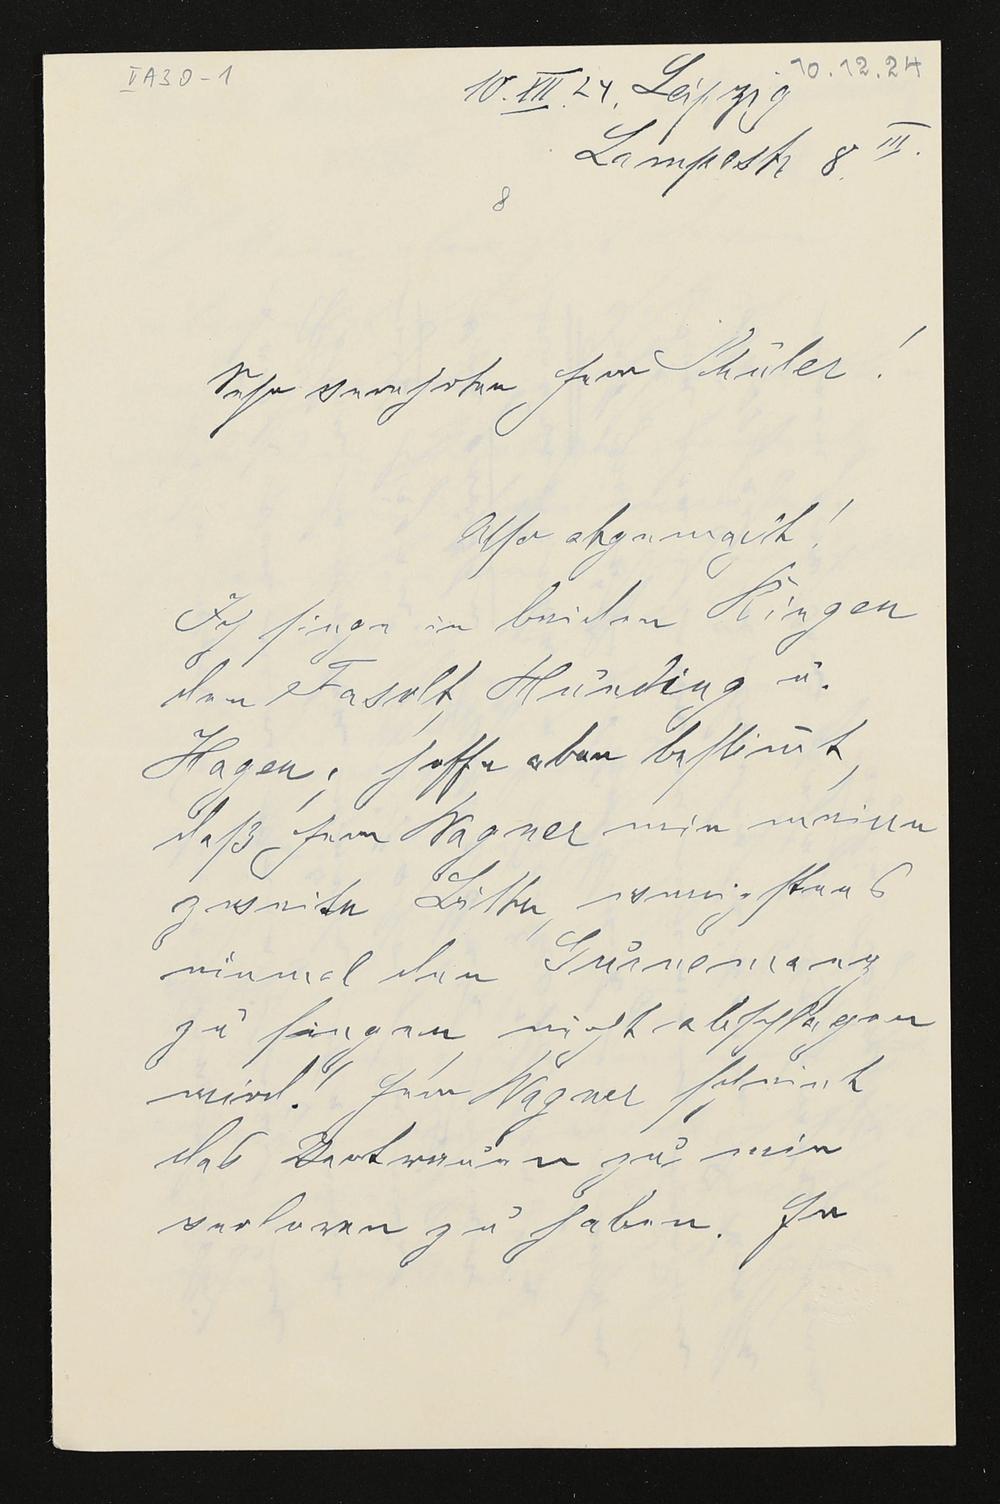 I A 30-1
10.12.24
10. XII. 24. Leipzig
Lampestr 8. III.
8
Sehr verehrter Herr Schüler!
Also abgemacht!
Ich singe in beiden Ringen
den Fasolt, Hunding u.
Hagen; hoffe aber bestim̄t,
daß Herr Wagner mir meine
zweite Bitte, wenigstens
einmal den Gurnemanz
zu singen nicht abschlagen
wird! Herr Wagner scheint
das Vertrauen zu mir
verloren zu haben. Er